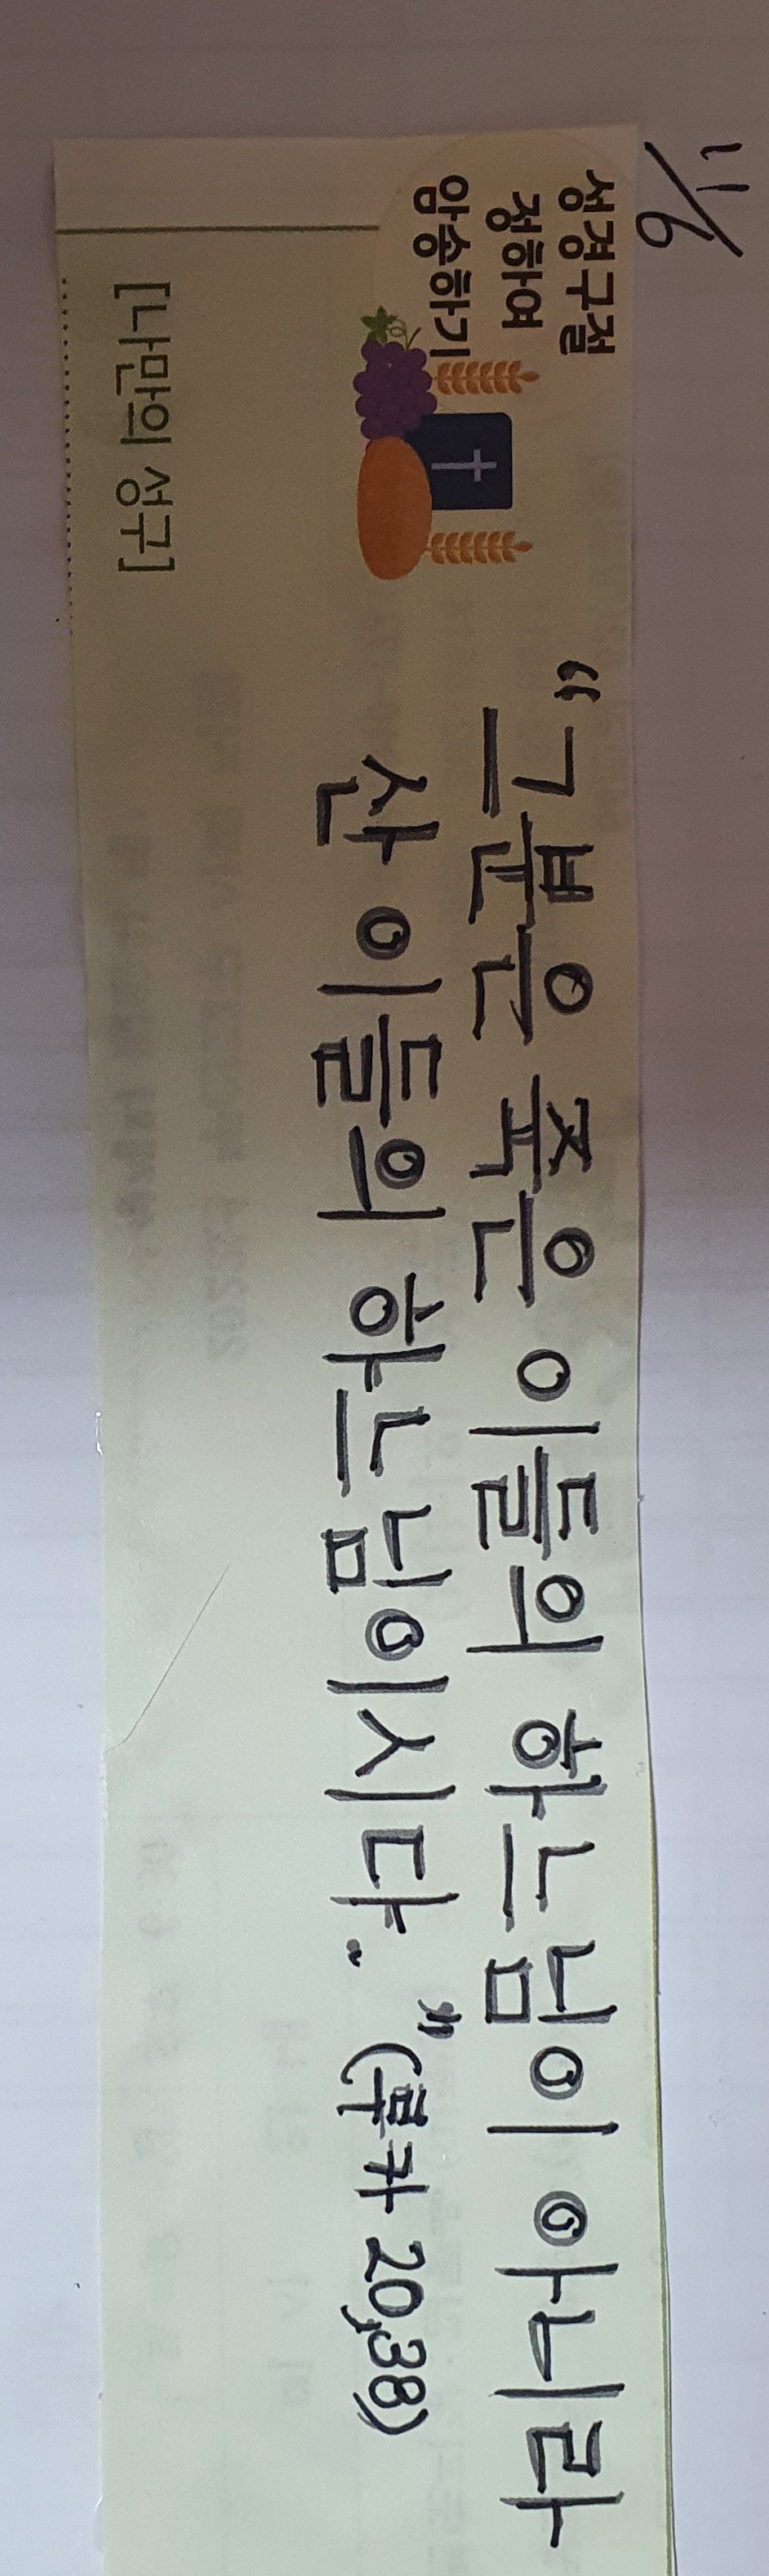 11/6
성경구절
정하여
암송하기
[나만의 성구]
“그분은 죽은 이들의 하느님이 아니라
산 이들의 하느님이시다.”(루카 20,38)